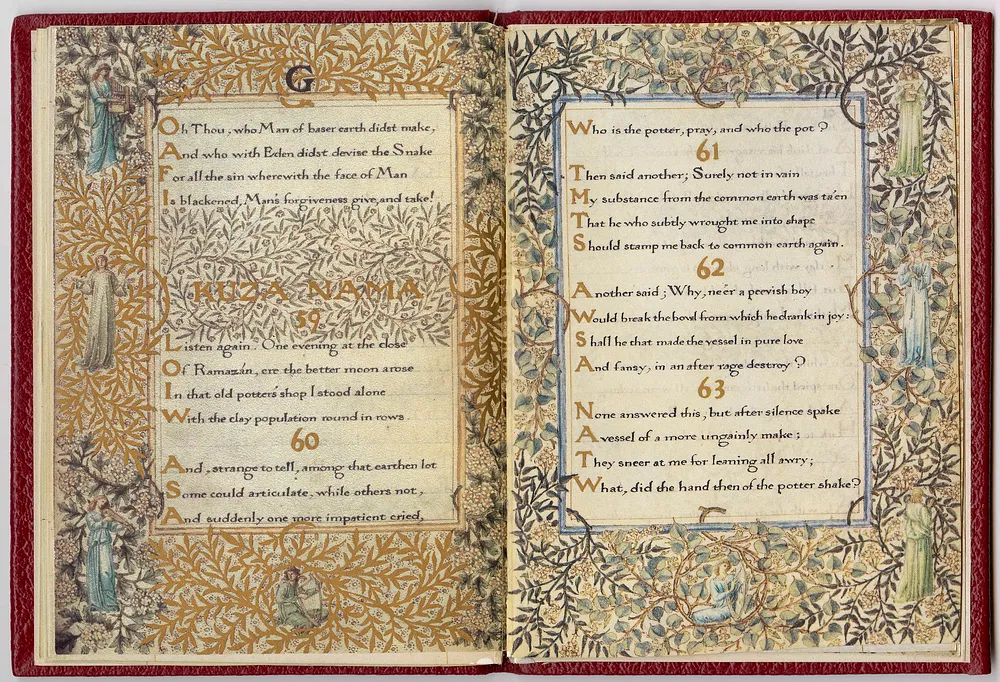 G
Oh Thou, who Man of baser earth didst make,
And who with Eden didst devise the Snake
For all the sin wherewith the face of Man
Is blackened, Man's forgiveness give, and take!
KUZA NAMA
59
Listen again. One evening at the close
Of Ramazán, ere the better moon arose
In that old potter's shop I stood alone
With the clay population round in rows.
60
And, strange to tell, among that earthen lot
Some could articulate, while others not,
And suddenly one more impatient cried,
Who is the potter, pray, and who the pot?
61
Then said another; Surely not in vain
My substance from the common earth was ta'en
That he who subtly wrought me into shape
Should stamp me back to common earth again.
62
Another said; Why, ne'er a peevish boy
Would break the bowl from which he drank in joy:
Shall he that made the vessel in pure love
And fansy, in an after rage destroy?
63
None answered this, but after silence spake
A vessel of a more ungainly make;
They sneer at me for leaning all awry;
What, did the hand then of the potter shake?